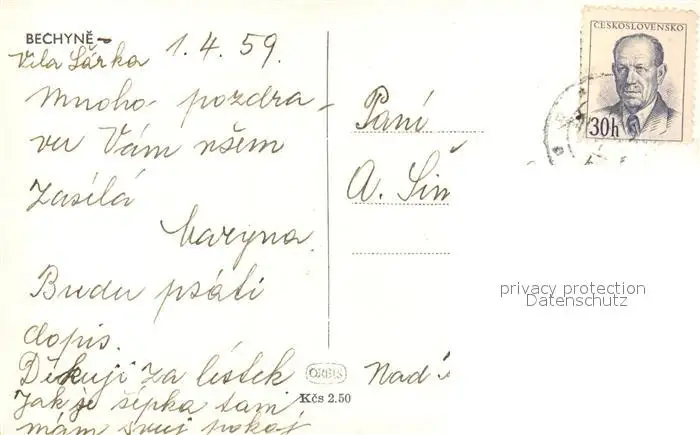 BECHYNĚ –
Vila Šárka 1.4.59.
Mnoho pozdra-
vu Vám všem
zasílá
Maryna.
Budu psáti
dopis.
Děkuji za lístek
Jak je šipka tam
mám svůj pokoj
ORBIS
Kčs 2.50
ČESKOSLOVENSKO
30h
Paní
A. Šim
privacy protection
Datenschutz
Nad